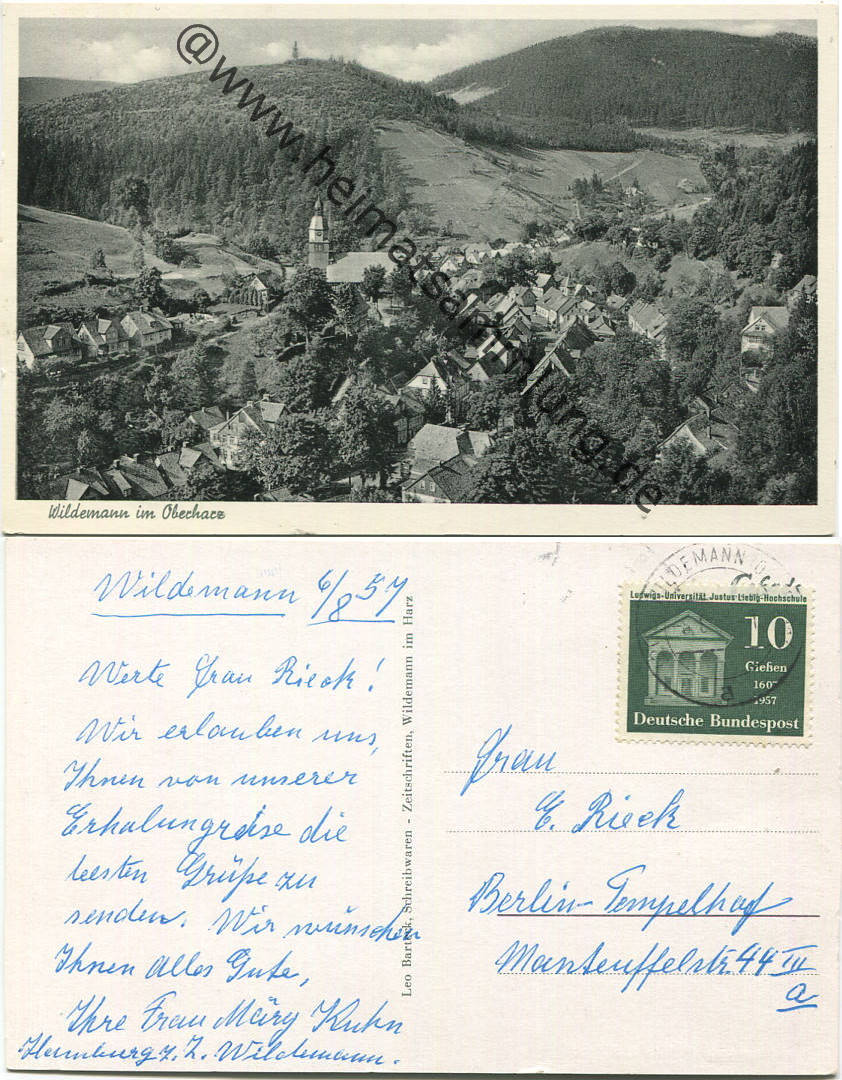 @www.heimatsammlung.de
Wildemann im Oberharz
Wildemann 6/8 57
Werte Frau Rieck!
Wir erlauben uns,
Ihnen von unserer
Erholungreise die
besten Grüße zu
senden. Wir wünschen
Ihnen Alles Gute,
Ihre Frau Märy Kuhn
Hamburg z. Z. Wildemann.
Leo Bartock, Schreibwaren - Zeitschriften, Wildemann im Harz
WILDEMANN
Ludwigs-Universität Justus Liebig-Hochschule
10
Gießen
1607
1957
Deutsche Bundespost
Frau
E. Rieck
Berlin-Tempelhof
Manteuffelstr. 44 III
a